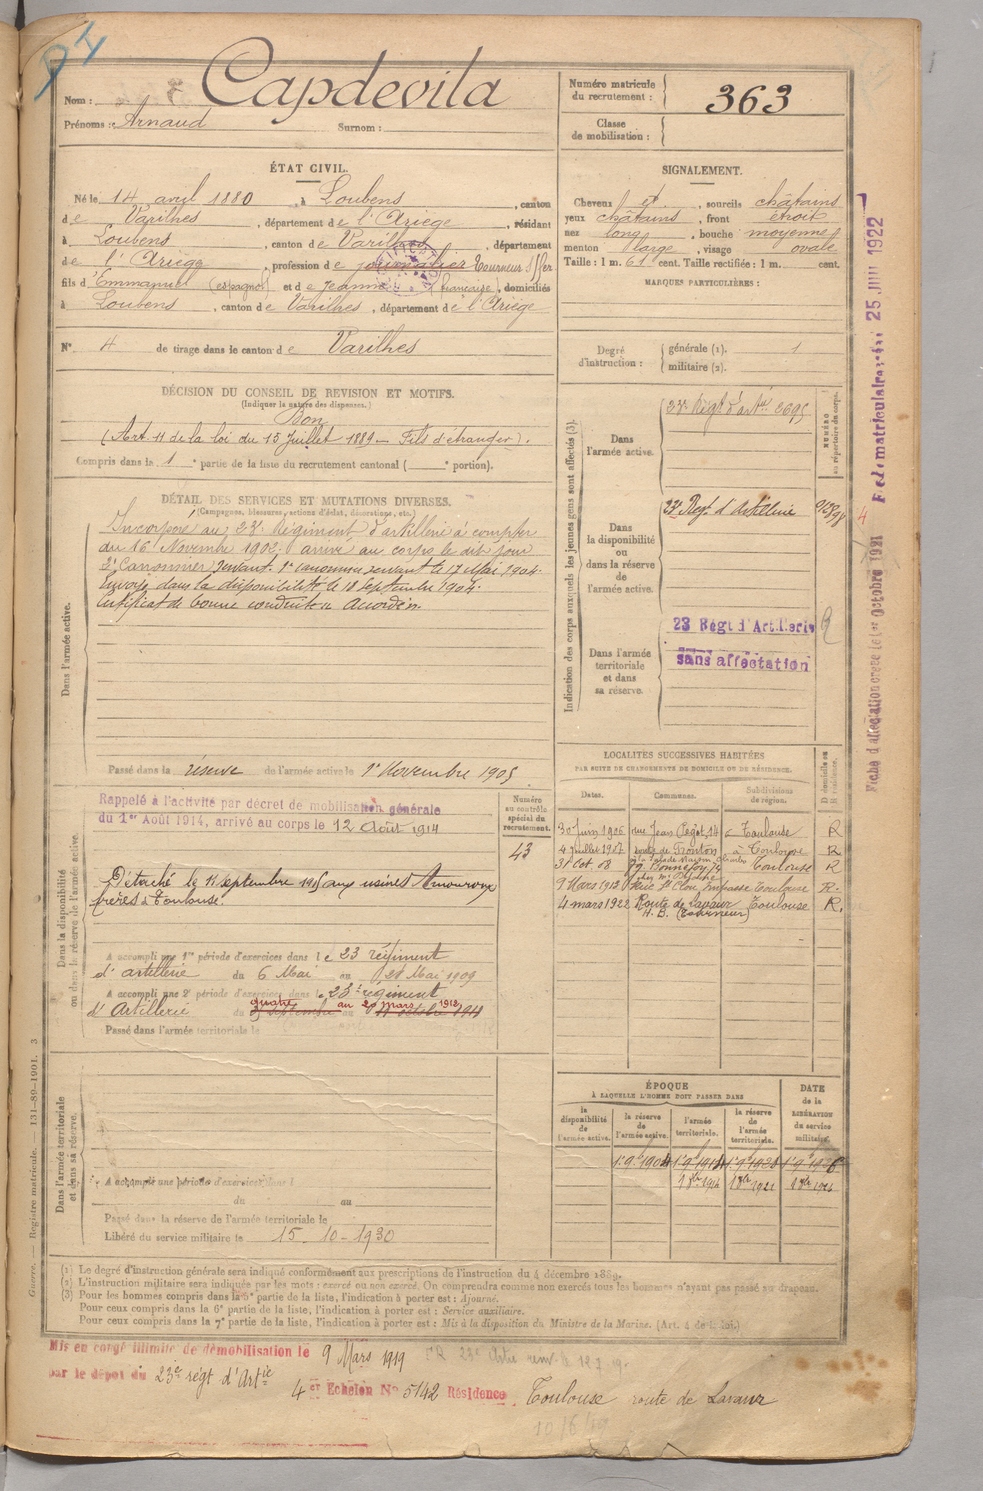 Nom : Capdevila
Prénoms : Arnaud Surnom :
Numéro matricule du recrutement : 363
Classe de mobilisation :
ÉTAT CIVIL.
Né le 14 avril 1880, à Loubens, canton
de Varilhes, département de l'Ariège, résidant
à Loubens, canton de Varilhes, département
de l'Ariège, profession de journalier Tourneur s/ fer
fils d'Emmanuel (espagnol) et de Jeanne (française), domiciliés
à Loubens, canton de Varilhes, département de l'Ariège
N° 4 de tirage dans le canton de Varilhes
SIGNALEMENT.
Cheveux et, sourcils châtains
yeux châtains, front étroit
nez long, bouche moyenne
menton large, visage ovale
Taille : 1 m. 61 cent. Taille rectifiée : 1 m. cent.
MARQUES PARTICULIÈRES :
Degré d'instruction : générale (1). 1
militaire (2).
DÉCISION DU CONSEIL DE REVISION ET MOTIFS.
(Indiquer la nature des dispenses.)
Bon
(Art. 11 de la loi du 15 Juillet 1889 — Fils d'étranger).
Compris dans la 1e partie de la liste du recrutement cantonal ( e portion).
DÉTAIL DES SERVICES ET MUTATIONS DIVERSES.
(Campagnes, blessures, actions d'éclat, décorations, etc.)
Dans l'armée active.
Incorporé au 23e Régiment d'artillerie à compter
du 16 Novembre 1902. arrivé au corps le dit jour
2e Canonnier servant. 1er canonnier servant le 17 Mai 1904.
Envoyé dans la disponibilité le 18 Septembre 1904.
Certificat de bonne conduite Accordé.
Passé dans la réserve de l'armée active le 1er Novembre 1905
Indication des corps auxquels les jeunes gens sont affectés (3).
Dans l'armée active.
23e Régt d'artie 2695
NUMÉRO au répertoire du corps.
Dans la disponibilité ou dans la réserve de l'armée active.
23e Regt. d'Artillerie
23 Régt d'Artillerie
Dans l'armée territoriale et dans sa réserve.
sans affectation
Fiche d'affectation créée le 1er Octobre 1921
Fe de matriculaire 25 JUIL 1922
Dans la disponibilité ou dans la réserve de l'armée active.
Rappelé à l'activité par décret de mobilisation générale
du 1er Août 1914, arrivé au corps le 12 Août 1914
Numéro au contrôle spécial du recrutement.
43
Détaché le 11 septembre 1915 aux usines Amouroux
frères à Toulouse.
A accompli une 1re période d'exercices dans le 23 régiment
d'artillerie du 6 Mai au 28 Mai 1909
A accompli une 2e période d'exercices dans le 23e régiment
d'Artillerie du quatre au 20 mars 1912
Passé dans l'armée territoriale le
LOCALITÉS SUCCESSIVES HABITÉES
PAR SUITE DE CHANGEMENTS DE DOMICILE OU DE RÉSIDENCE.
Dates. Communes. Subdivisions de région. D domicile ou R résidence.
30 Juin 1906 rue Jean Pégot, 14 Toulouse R
4 Juillet 1907 route de Fronton à Toulouse R
31 Oct. 08 Bonnefoy 74 Toulouse R
9 Mars 1913 Rue St Clou, Impasse Toulouse R.
4 mars 1922 Route de Lavaur Toulouse R.
H.B. (Tourneur)
ÉPOQUE
À LAQUELLE L'HOMME DOIT PASSER DANS
DATE de la LIBÉRATION du service militaire.
la disponibilité de l'armée active. la réserve de l'armée active. l'armée territoriale. la réserve de l'armée territoriale.
Dans l'armée territoriale et dans sa réserve.
A accompli une période d'exercices dans l
du au
Passé dans la réserve de l'armée territoriale le
Libéré du service militaire le 15 - 10 - 1930
(1) Le degré d'instruction générale sera indiqué conformément aux prescriptions de l'instruction du 4 décembre 1889.
(2) L'instruction militaire sera indiquée par les mots : exercé ou non exercé. On comprendra comme non exercés tous les hommes n'ayant pas passé au drapeau.
(3) Pour les hommes compris dans la 5e partie de la liste, l'indication à porter est : Ajourné.
Pour ceux compris dans la 6e partie de la liste, l'indication à porter est : Service auxiliaire.
Pour ceux compris dans la 7e partie de la liste, l'indication à porter est : Mis à la disposition du Ministre de la Marine. (Art. 4 de la loi.)
Guerre. — Registre matricule. — 131-89-1901. 3
Mis en congé illimité de démobilisation le 9 Mars 1919
par le dépôt du 23e régt d'Artie
4er Echelon N° 5142 Résidence Toulouse route de Lavaur